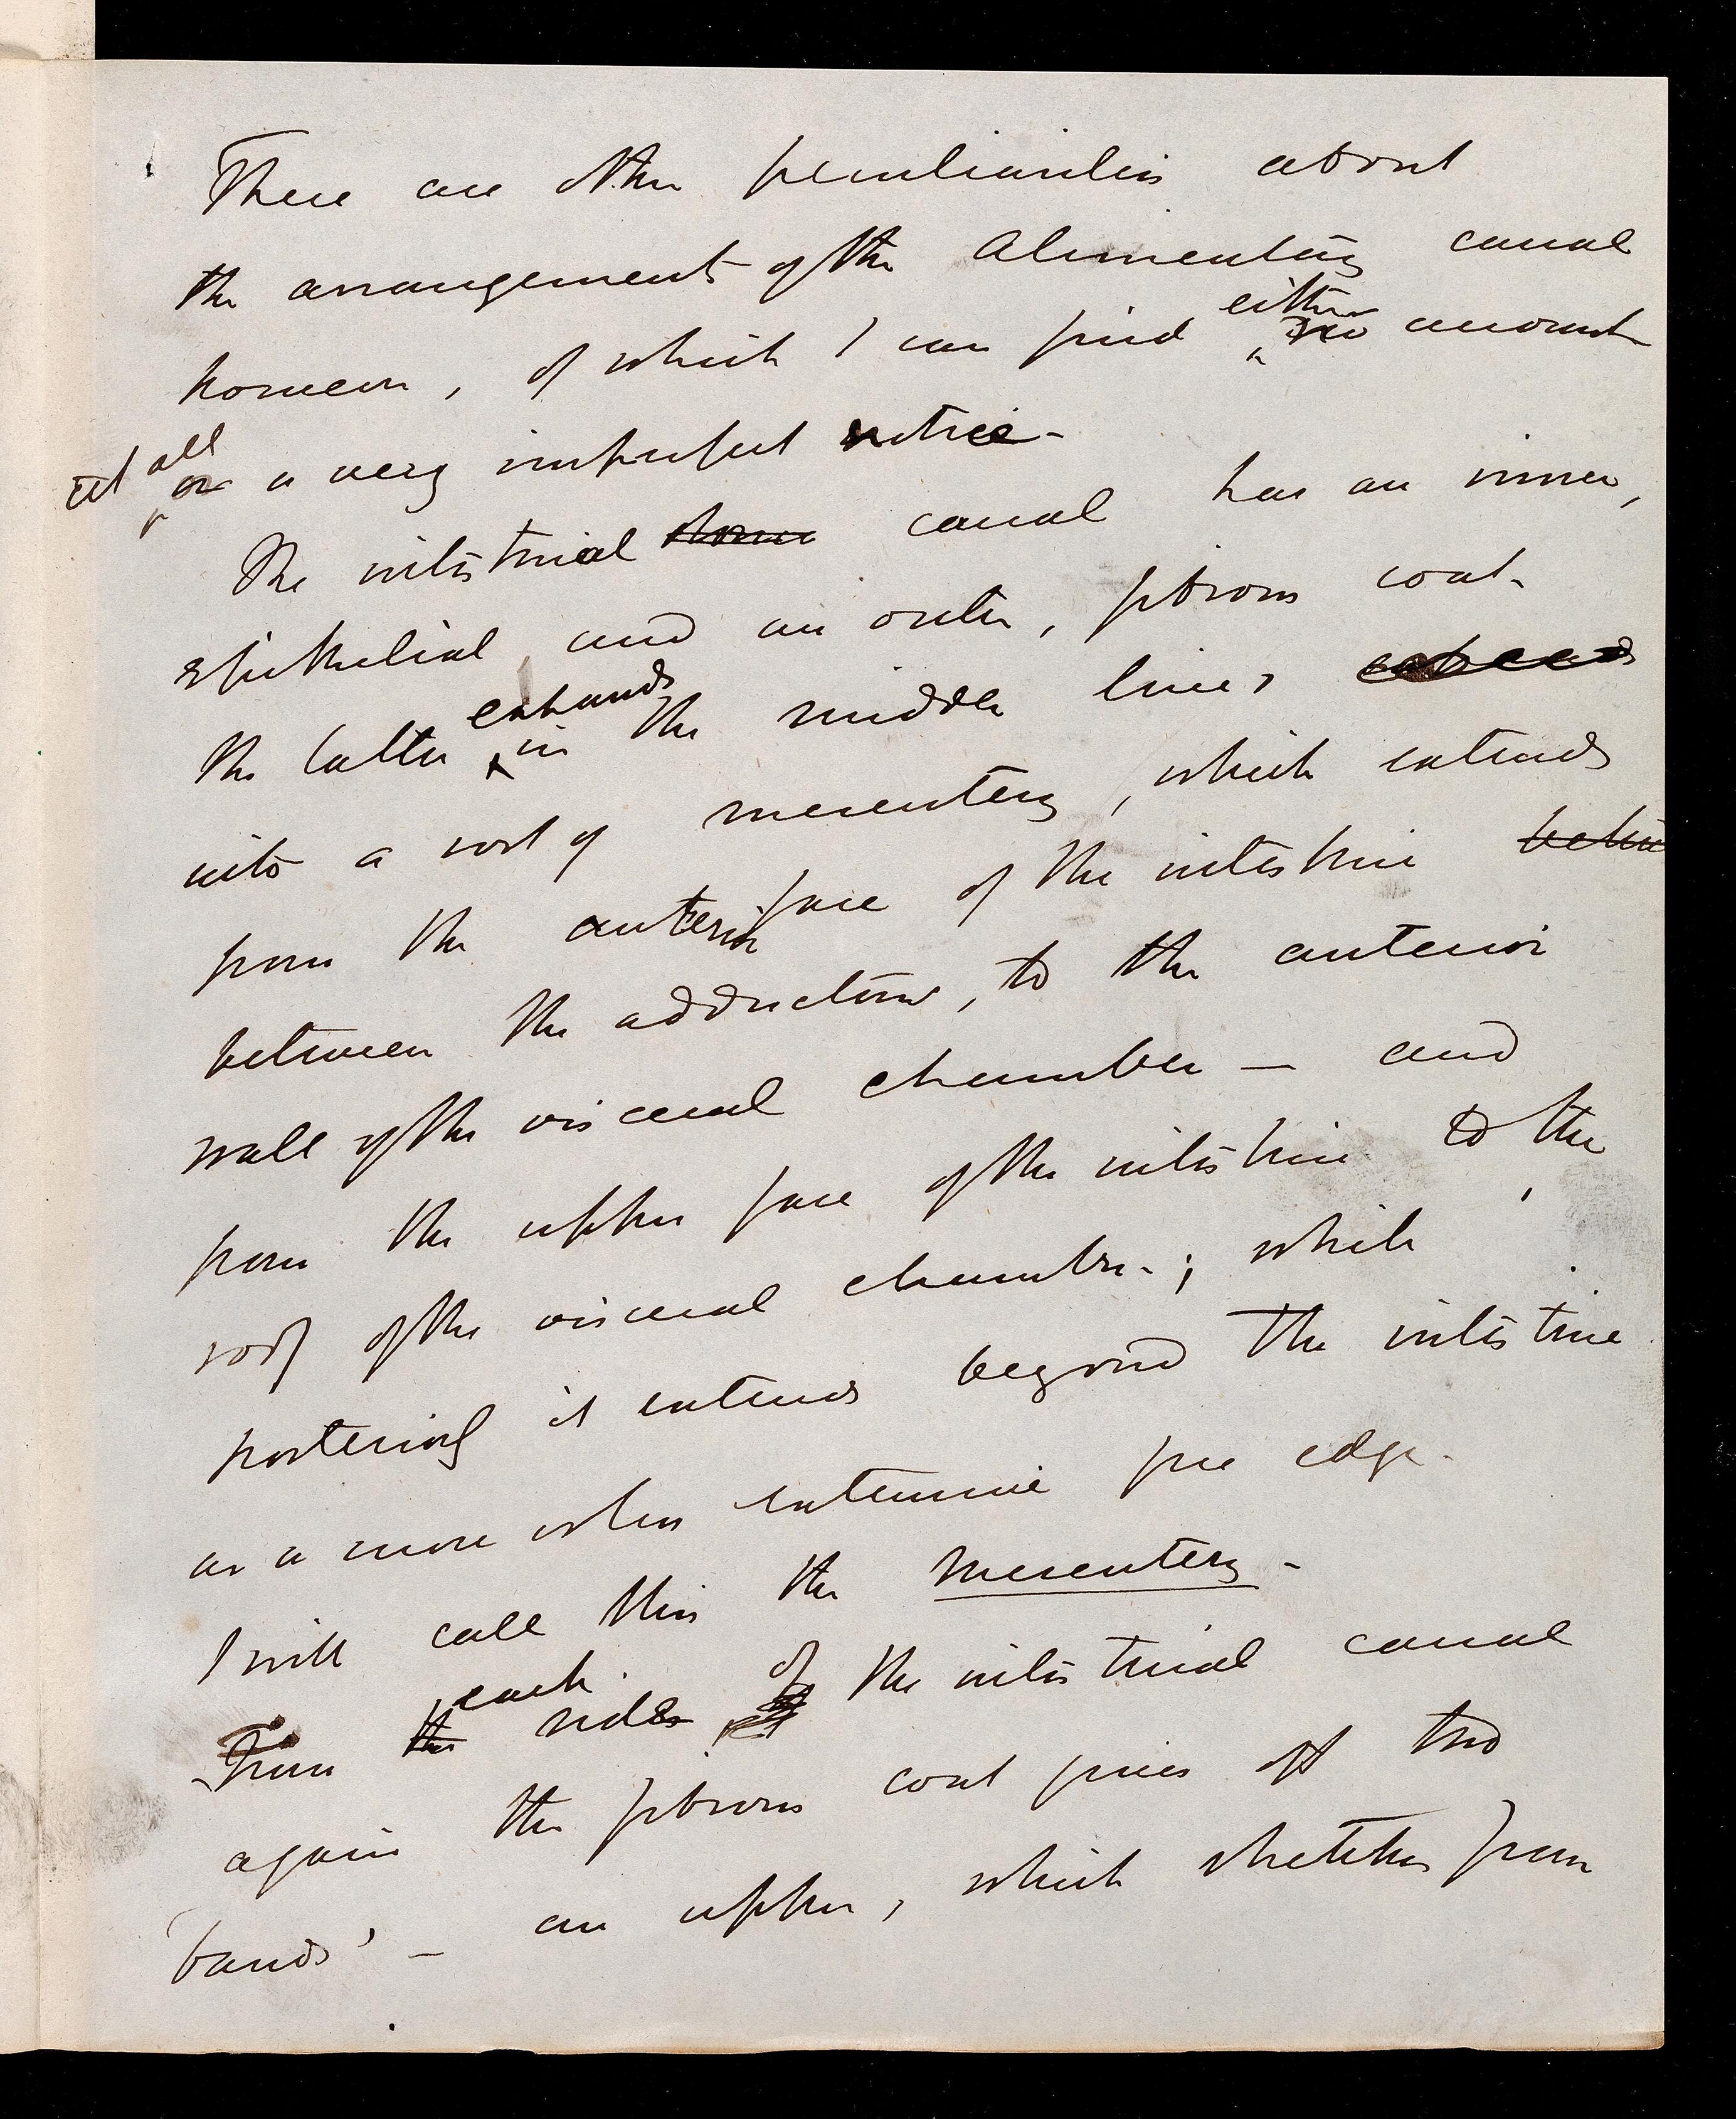 There are other peculiarities about
the arrangement of the Alimentary canal
however, of which I can find either no account
at all or a very imperfect notice –
The intestinal canal has an inner,
epithelial, and an outer, fibrous coat.
The latter expands in the middle line,
into a sort of mesentery, which extends
from the anterior face of the intestine
between the adductors, to the anterior
wall of the visceral chamber — and
from the upper face of the intestine to the
roof of the visceral chamber; while
posteriorly it extends beyond the intestine
as a more or less extensive free edge.
I will call this the Mesentery –
From the each side of the intestinal canal
again the fibrous coat gives off two
'bands' – an upper, which stretches from